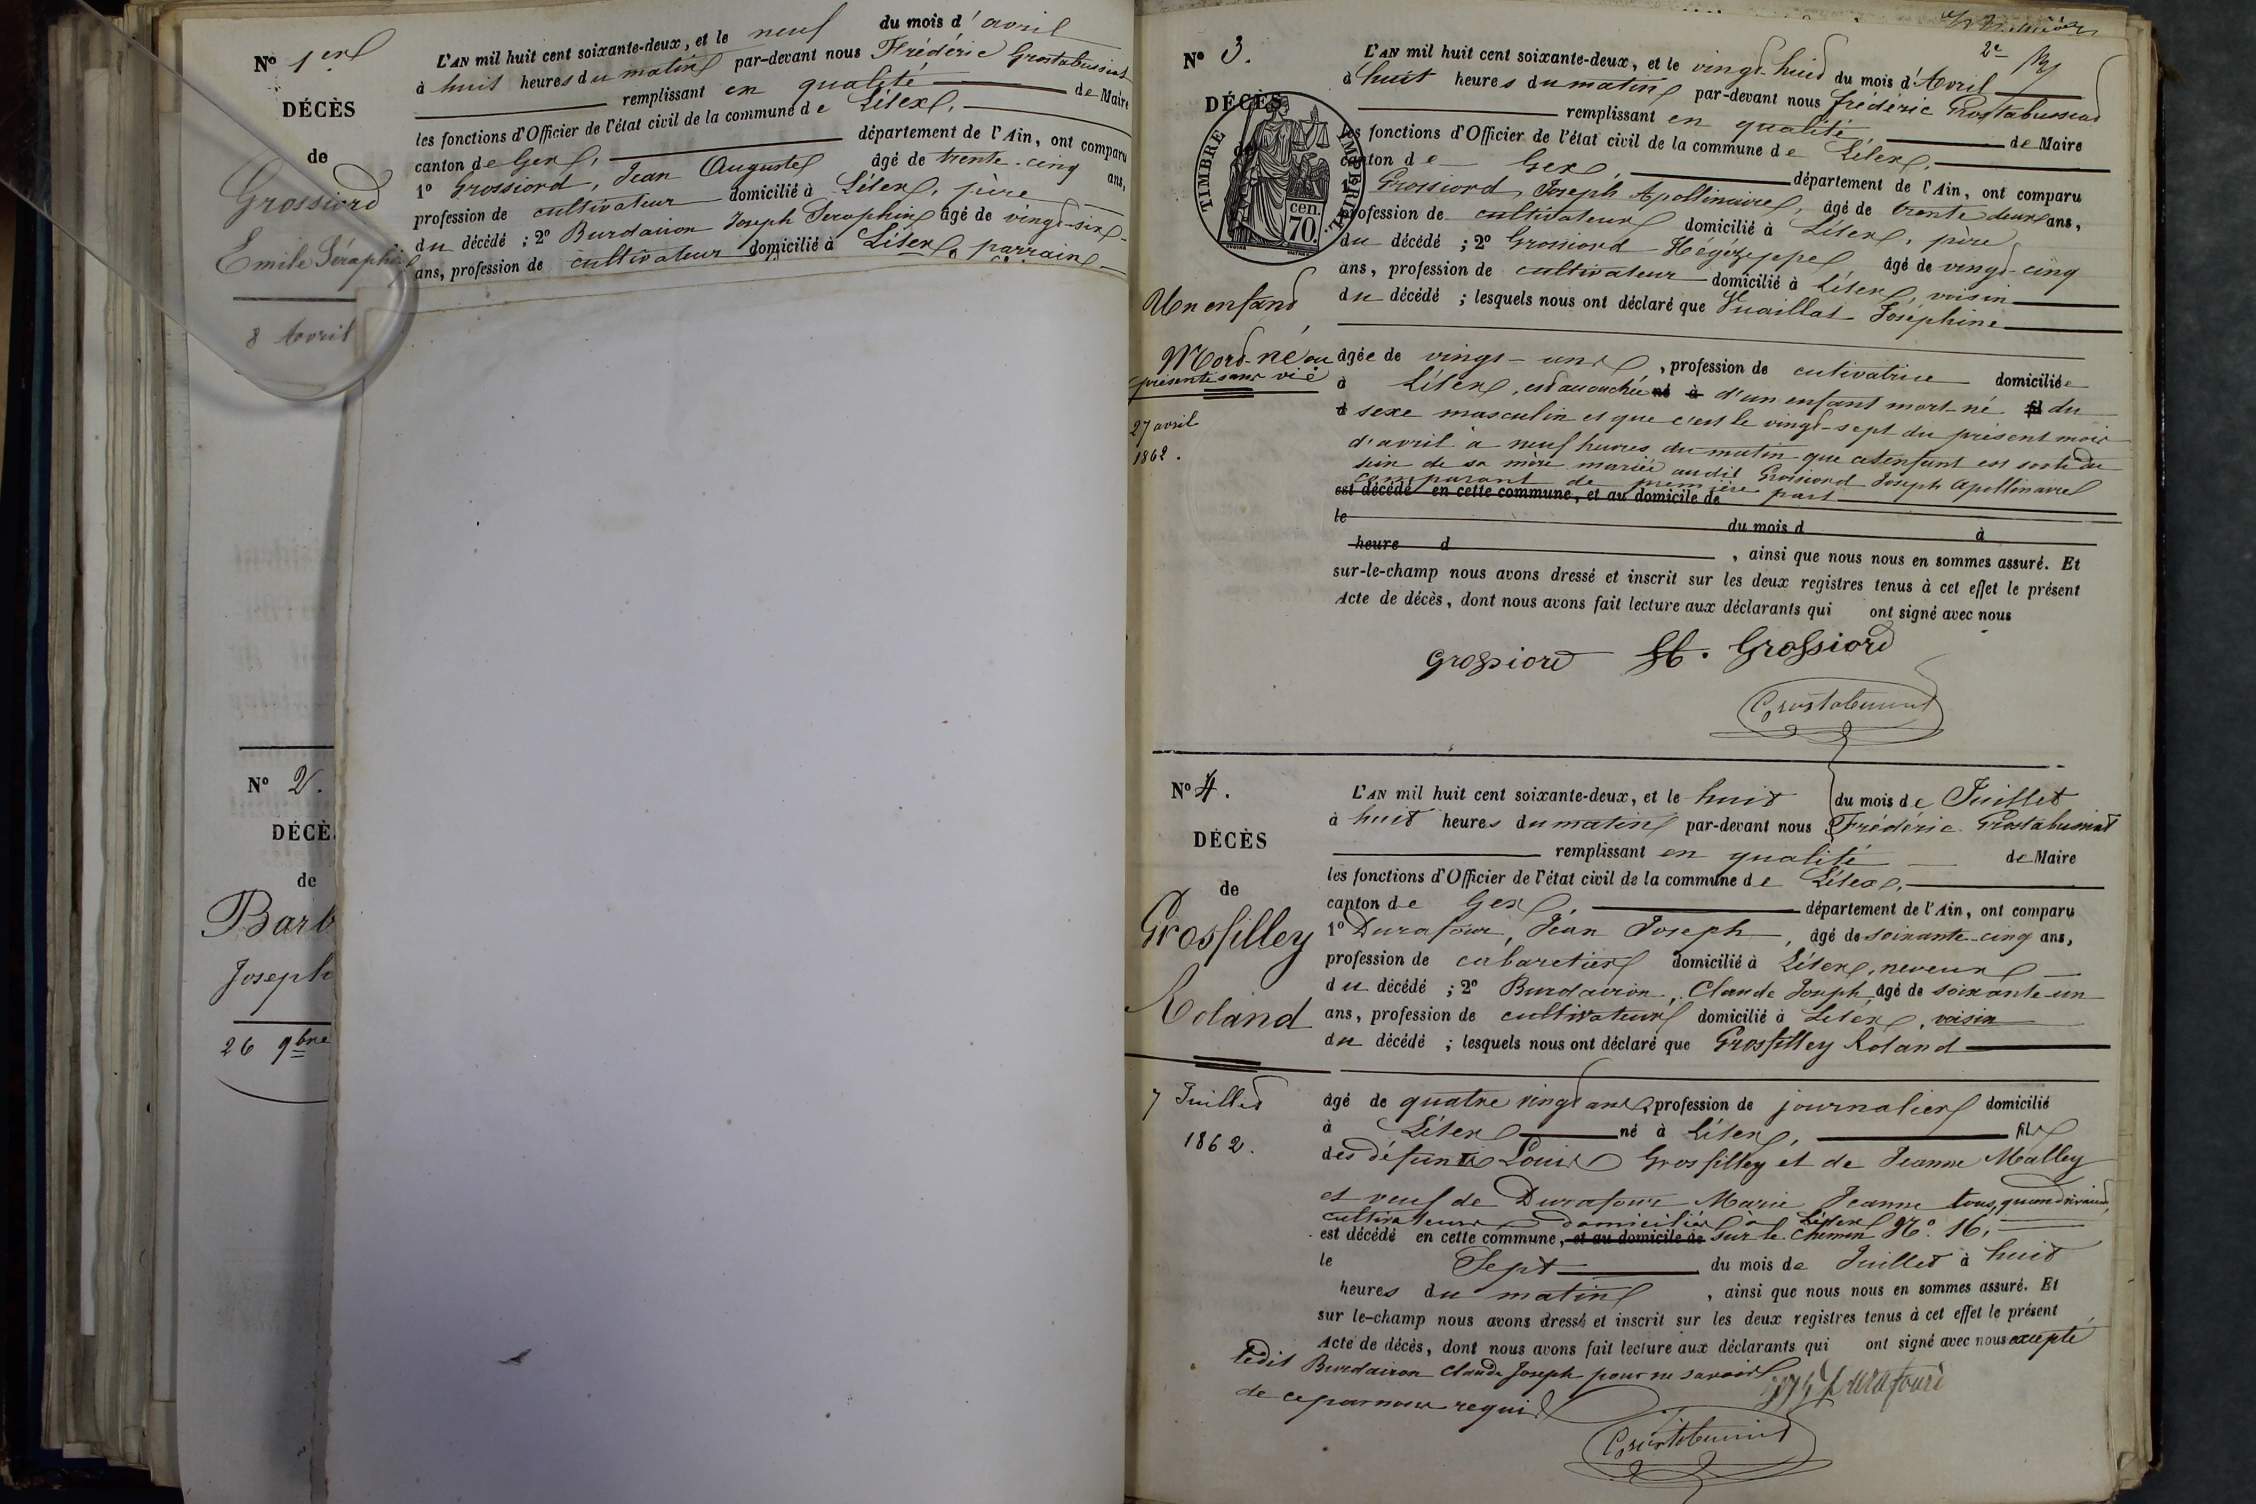 N° 1er
DÉCÈS
de
Grossiord
Emile Séraphin
8 Avril
L'AN mil huit cent soixante-deux, et le neuf du mois d'avril
à huit heures du matin par-devant nous Frédéric Grostabussiat
remplissant en qualité de Maire
les fonctions d'Officier de l'état civil de la commune de Lélex,
canton de Gex, département de l'Ain, ont comparu
1° Grossiord, Jean Auguste âgé de trente-cinq ans,
profession de cultivateur domicilié à Lélex, père
du décédé ; 2° Burdairon Joseph Séraphin âgé de vingt-six
ans, profession de cultivateur domicilié à Lélex, parrain
N° 2.
DÉCÈ
de
Barb
Joseph
26 9bre
2e
N° 3.
DÉCÈS
de
TIMBRE IMPÉRIAL
70 cen.
Un enfant
Mort-né ou
présenté sans vie
27 avril
1862.
L'AN mil huit cent soixante-deux, et le vingt-huit du mois d'Avril
à huit heures du matin par-devant nous frédéric Grostabussiat
remplissant en qualité de Maire
les fonctions d'Officier de l'état civil de la commune de Lélex,
canton de Gex, département de l'Ain, ont comparu
1° Grossiord, Joseph Apollinaire, âgé de trente deux ans,
profession de cultivateur domicilié à Lélex, père
du décédé ; 2° Grossiord Hégézippe âgé de vingt-cinq
ans, profession de cultivateur domicilié à Lélex, voisin
du décédé ; lesquels nous ont déclaré que Vuaillat Joséphine
âgée de vingt-un, profession de cutivatrice domiciliée
à Lélex, est accouchée né à d'un enfant mort-né fil du
d sexe masculin et que c'est le vingt-sept du présent mois
d'avril à neuf heures du matin que cet enfant est sorti du
sein de sa mère mariée audit Grossiord Joseph Apollinaire
comparant de première part
est décédé en cette commune, et au domicile de
le du mois d à
heure d , ainsi que nous nous en sommes assuré. Et
sur-le-champ nous avons dressé et inscrit sur les deux registres tenus à cet effet le présent
Acte de décès, dont nous avons fait lecture aux déclarants qui ont signé avec nous
Grossiord H. Grossiord
Grostabussiat
N° 4.
DÉCÈS
de
Grosfilley
Roland
7 Juillet
1862.
L'AN mil huit cent soixante-deux, et le huit du mois de Juillet
à huit heures du matin par-devant nous Frédéric Grostabussiat
remplissant en qualité de Maire
les fonctions d'Officier de l'état civil de la commune de Lélex,
canton de Gex, département de l'Ain, ont comparu
1° Durafour, Jean Joseph, âgé de soixante-cinq ans,
profession de cabaretier domicilié à Lélex, neveux
du décédé ; 2° Burdairon, Claude Joseph âgé de soixante-un
ans, profession de cultivateur domicilié à Lélex, voisin
du décédé ; lesquels nous ont déclaré que Grosfilley Roland
âgé de quatre vingt ans, profession de journalier domicilié
à Lélex né à Lélex, fils
des défunts Louis Grosfilley et de Jeanne Malley
et veuf de Durafour Marie Jeanne tous, quand vivaient,
cultivateurs domiciliés à Lélex
est décédé en cette commune, et au domicile de sur le chemin N°. 16,
le Sept du mois de Juillet à huit
heures du matin , ainsi que nous nous en sommes assuré. Et
sur le-champ nous avons dressé et inscrit sur les deux registres tenus à cet effet le présent
Acte de décès, dont nous avons fait lecture aux déclarants qui ont signé avec nous excepté
ledit Burdairon Claude Joseph pour ne savoir
de ce par nous requis
Durafour
Grostabussiat